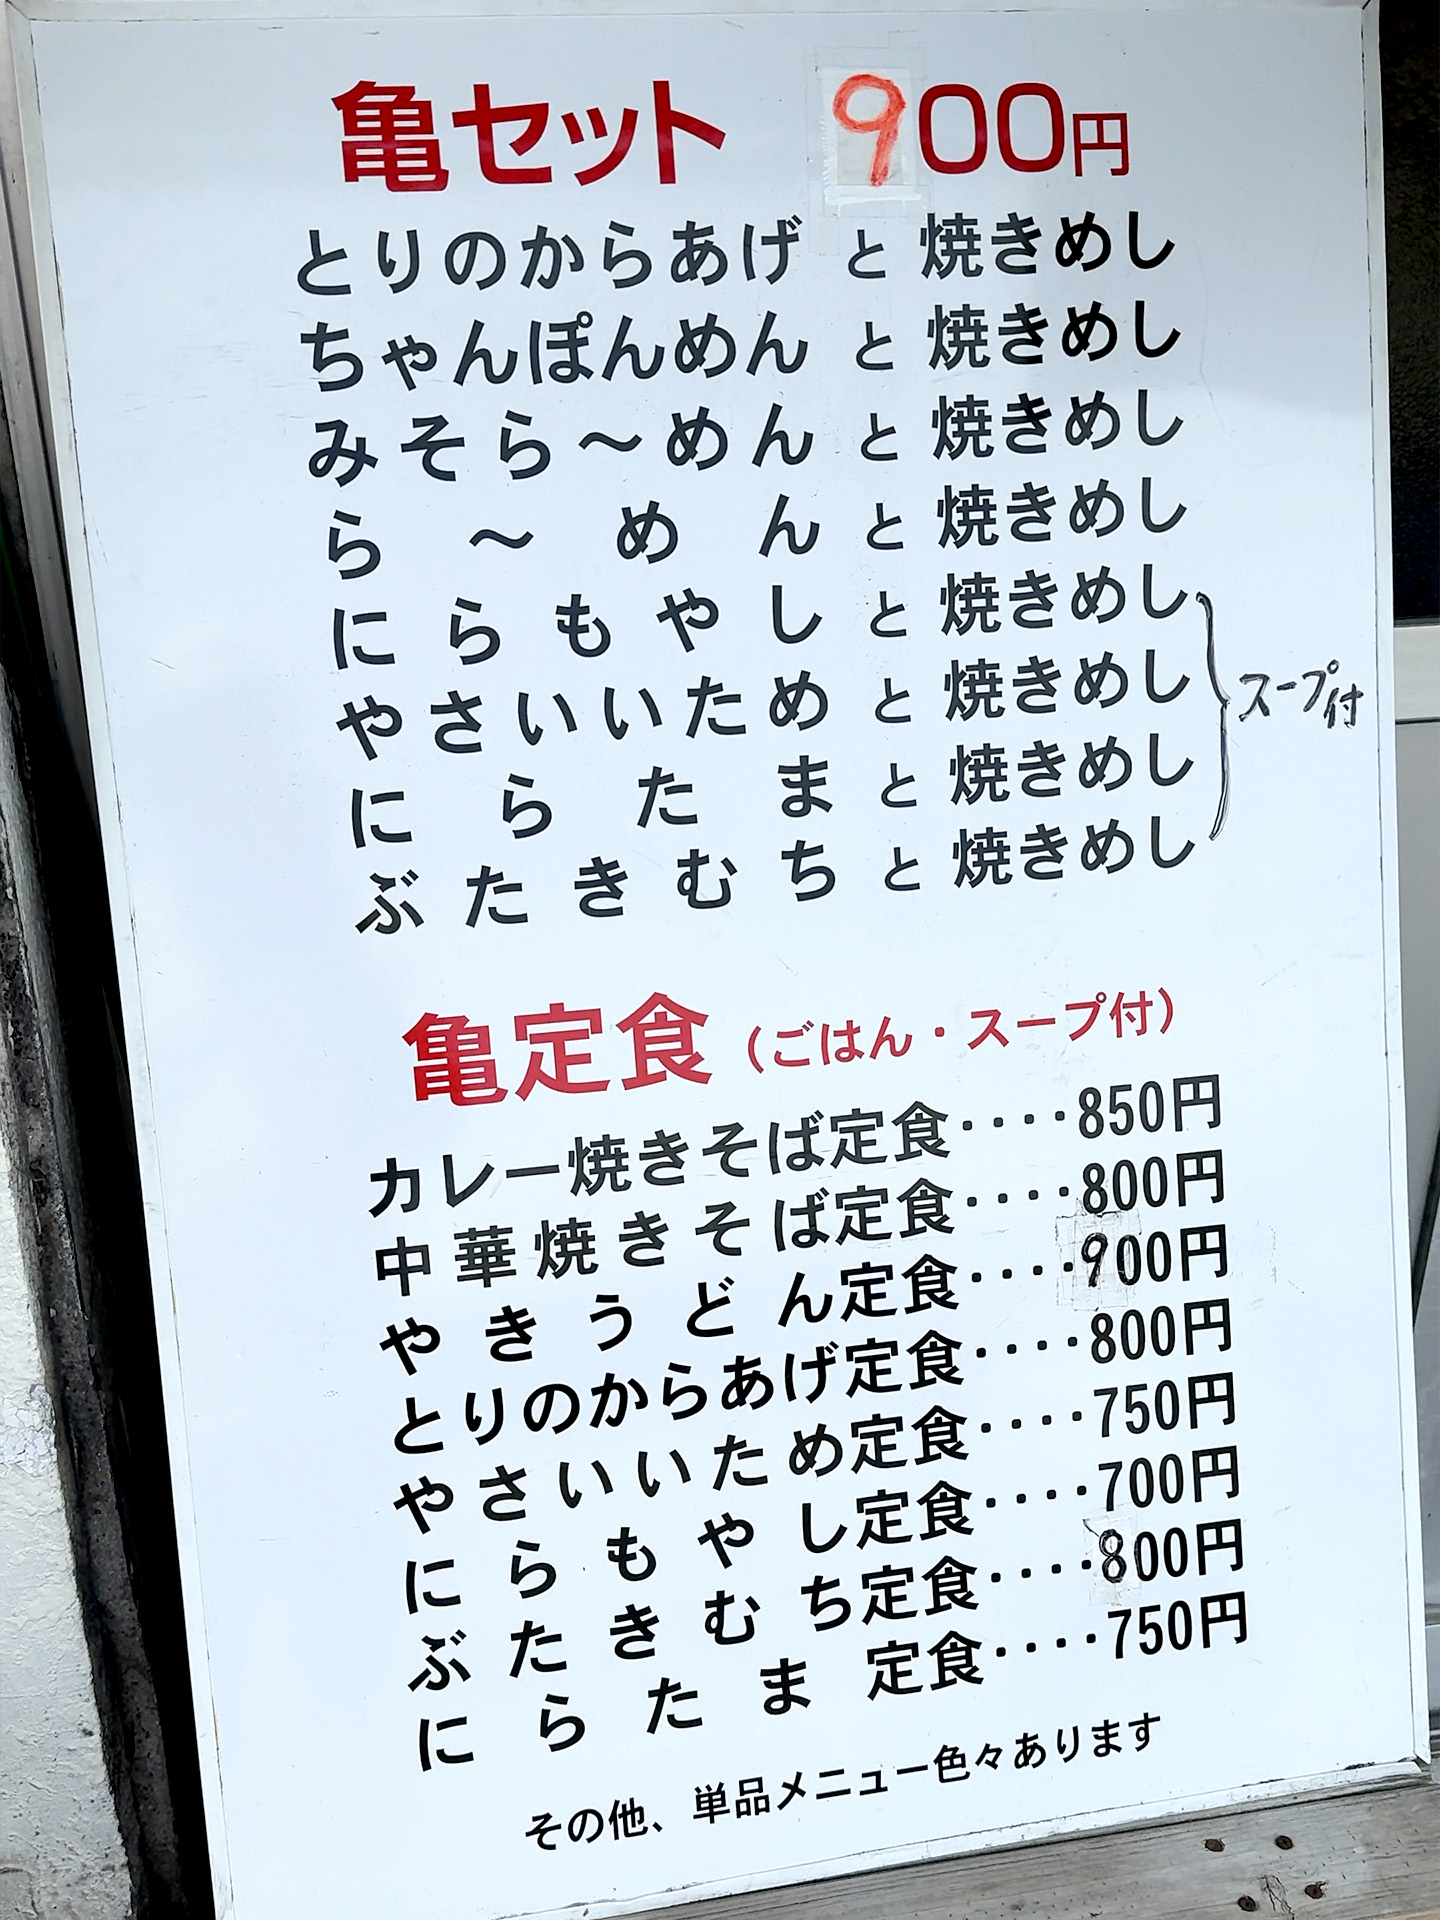 亀セット 900円
とりのからあげ と 焼きめし
ちゃんぽんめん と 焼きめし
みそら〜めん と 焼きめし
ら〜めん と 焼きめし
にらもやし と 焼きめし
やさいいため と 焼きめし
にらたま と 焼きめし
ぶたきむち と 焼きめし
スープ付
亀定食（ごはん・スープ付）
カレー焼きそば定食‥‥850円
中華焼きそば定食‥‥800円
やきうどん定食‥‥900円
とりのからあげ定食‥‥800円
やさいいため定食‥‥750円
にらもやし定食‥‥700円
ぶたきむち定食‥‥800円
にらたま 定食‥‥750円
その他、単品メニュー色々あります